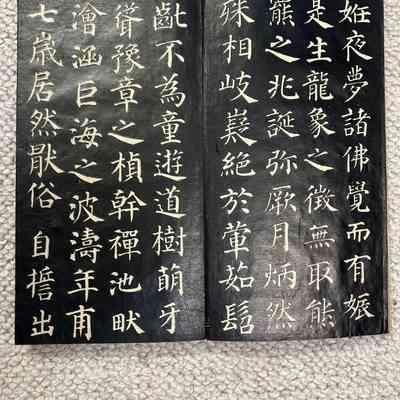 姙夜夢諸佛覺而有娠
是生龍象之徵無取熊
羆之兆誕彌厥月炳然
殊相岐嶷絕於葷茹髫
齓不為童遊道樹萌牙
聳豫章之楨幹禪池畎
澮涵巨海之波濤年甫
七歲居然猒俗自誓出